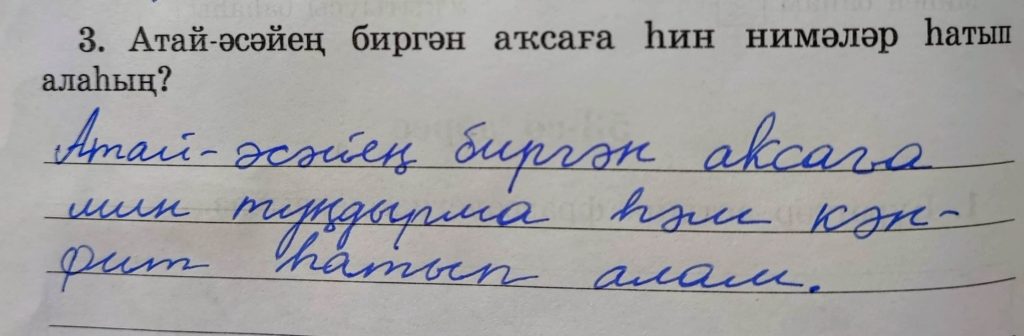 3. Атай-әсәйең биргән аҡсаға һин нимәләр һатып
алаһың?
Атай-әсәйең биргән аксаға
мин туңдырма һәм кән-
фит һатып алам.